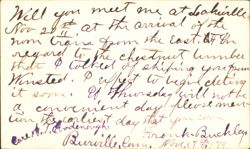 Will you meet me at Lakeville
Nov 20th at the arrival of the
noon train from the East. In
regard to the chestnut lumber
that I talked of shiping from
Winsted. I expect to begin deling
it soon. If thursday will not be
a convenient day please men
tion the earliest day that you can
Frank Buckley
Burrville, Conn, Nov. 17th 1879